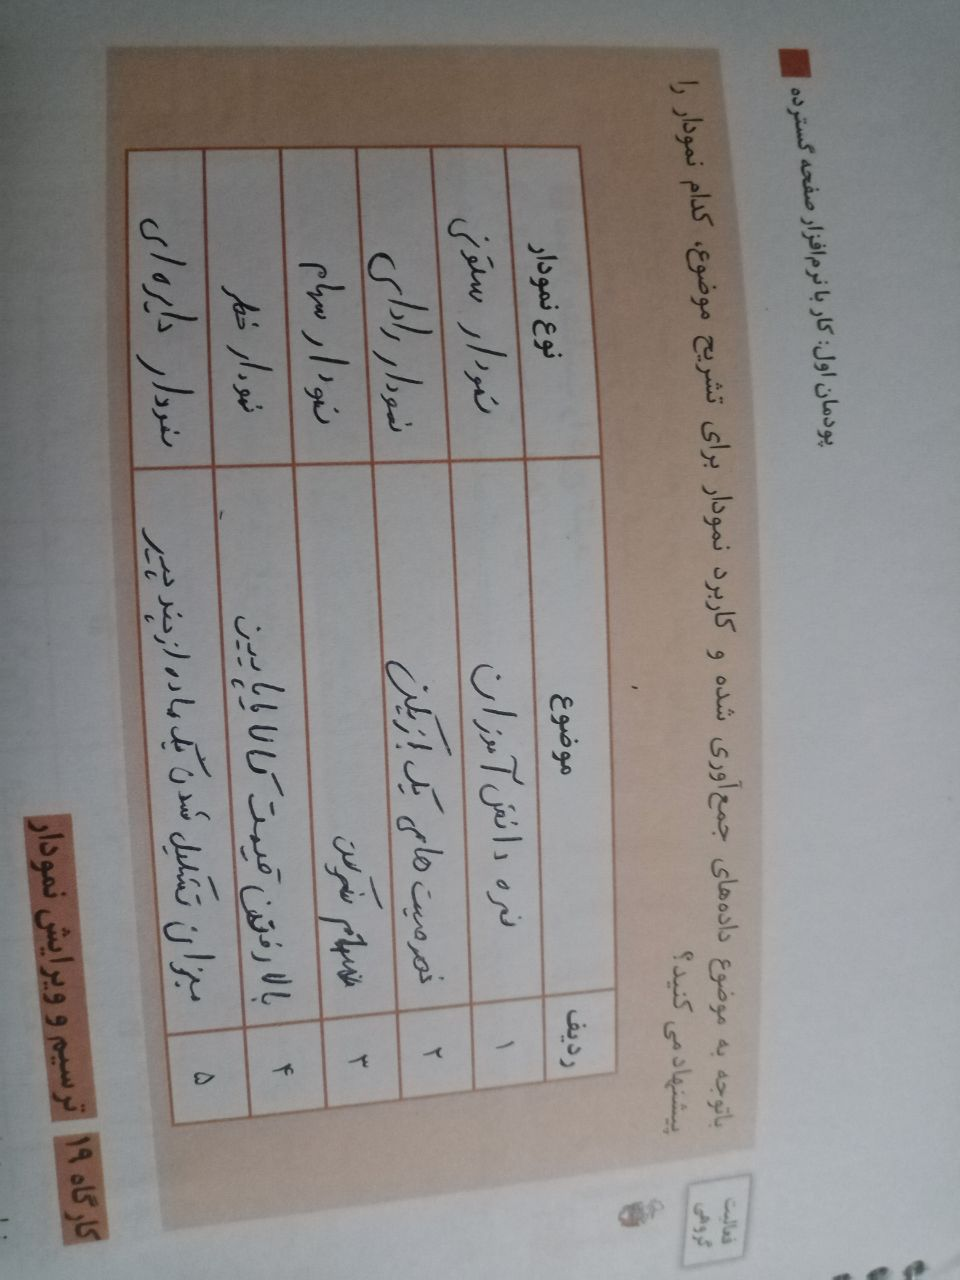 پودمان اول: کار با نرم‌افزار صفحه گسترده
فعالیت گروهی
باتوجه به موضوع داده‌های جمع‌آوری شده و کاربرد نمودار برای تشریح موضوع، کدام نمودار را
پیشنهاد می کنید؟
ردیف موضوع نوع نمودار
۱ نمره دانش آموزان نمودار ستونی
۲ خصوصیت های یک بازیکن نمودار راداری
۳ سهام شرکت نمودار سهام
۴ بالا رفتن قیمت کالا یا پایین نمودار خطی
۵ میزان تشکیل شدن یک ماده از چند چیز نمودار دایره ای
کارگاه ۱۹ ترسیم و ویرایش نمودار